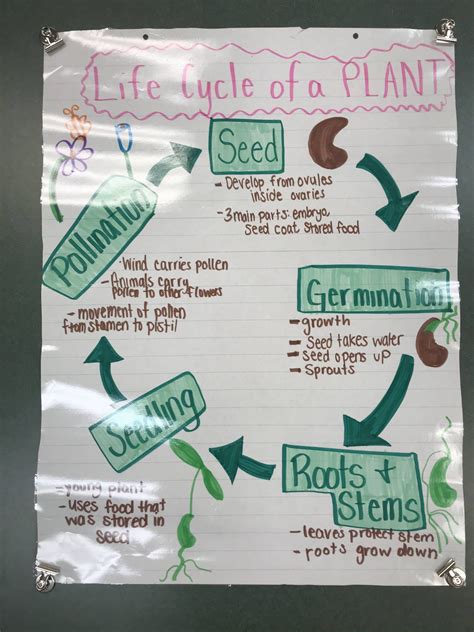 Life Cycle of a PLANT
Seed
- Develop from ovules
inside ovaries
- 3 main parts: embryo,
seed coat stored food
Germination
- growth
- Seed takes water
- Seed opens up
- Sprouts
Roots +
Stems
- leaves protect stem
- roots grow down
Seedling
- young plant
- uses food that
was stored in
seed
Pollination
· Wind carries pollen
- Animals carry
pollen to other flowers
- movement of pollen
from stamen to pistil